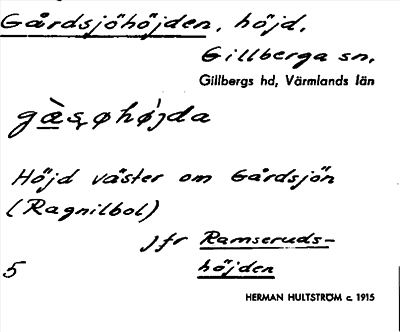 Gårdsjöhöjden, höjd,
Gillberga sn,
Gillbergs hd, Värmlands län
gæ̀søhø̀jda
Höjd väster om Gårdsjön
(Ragnilbol)
Jfr Ramseruds-
höjden
5
HERMAN HULTSTRÖM c. 1915